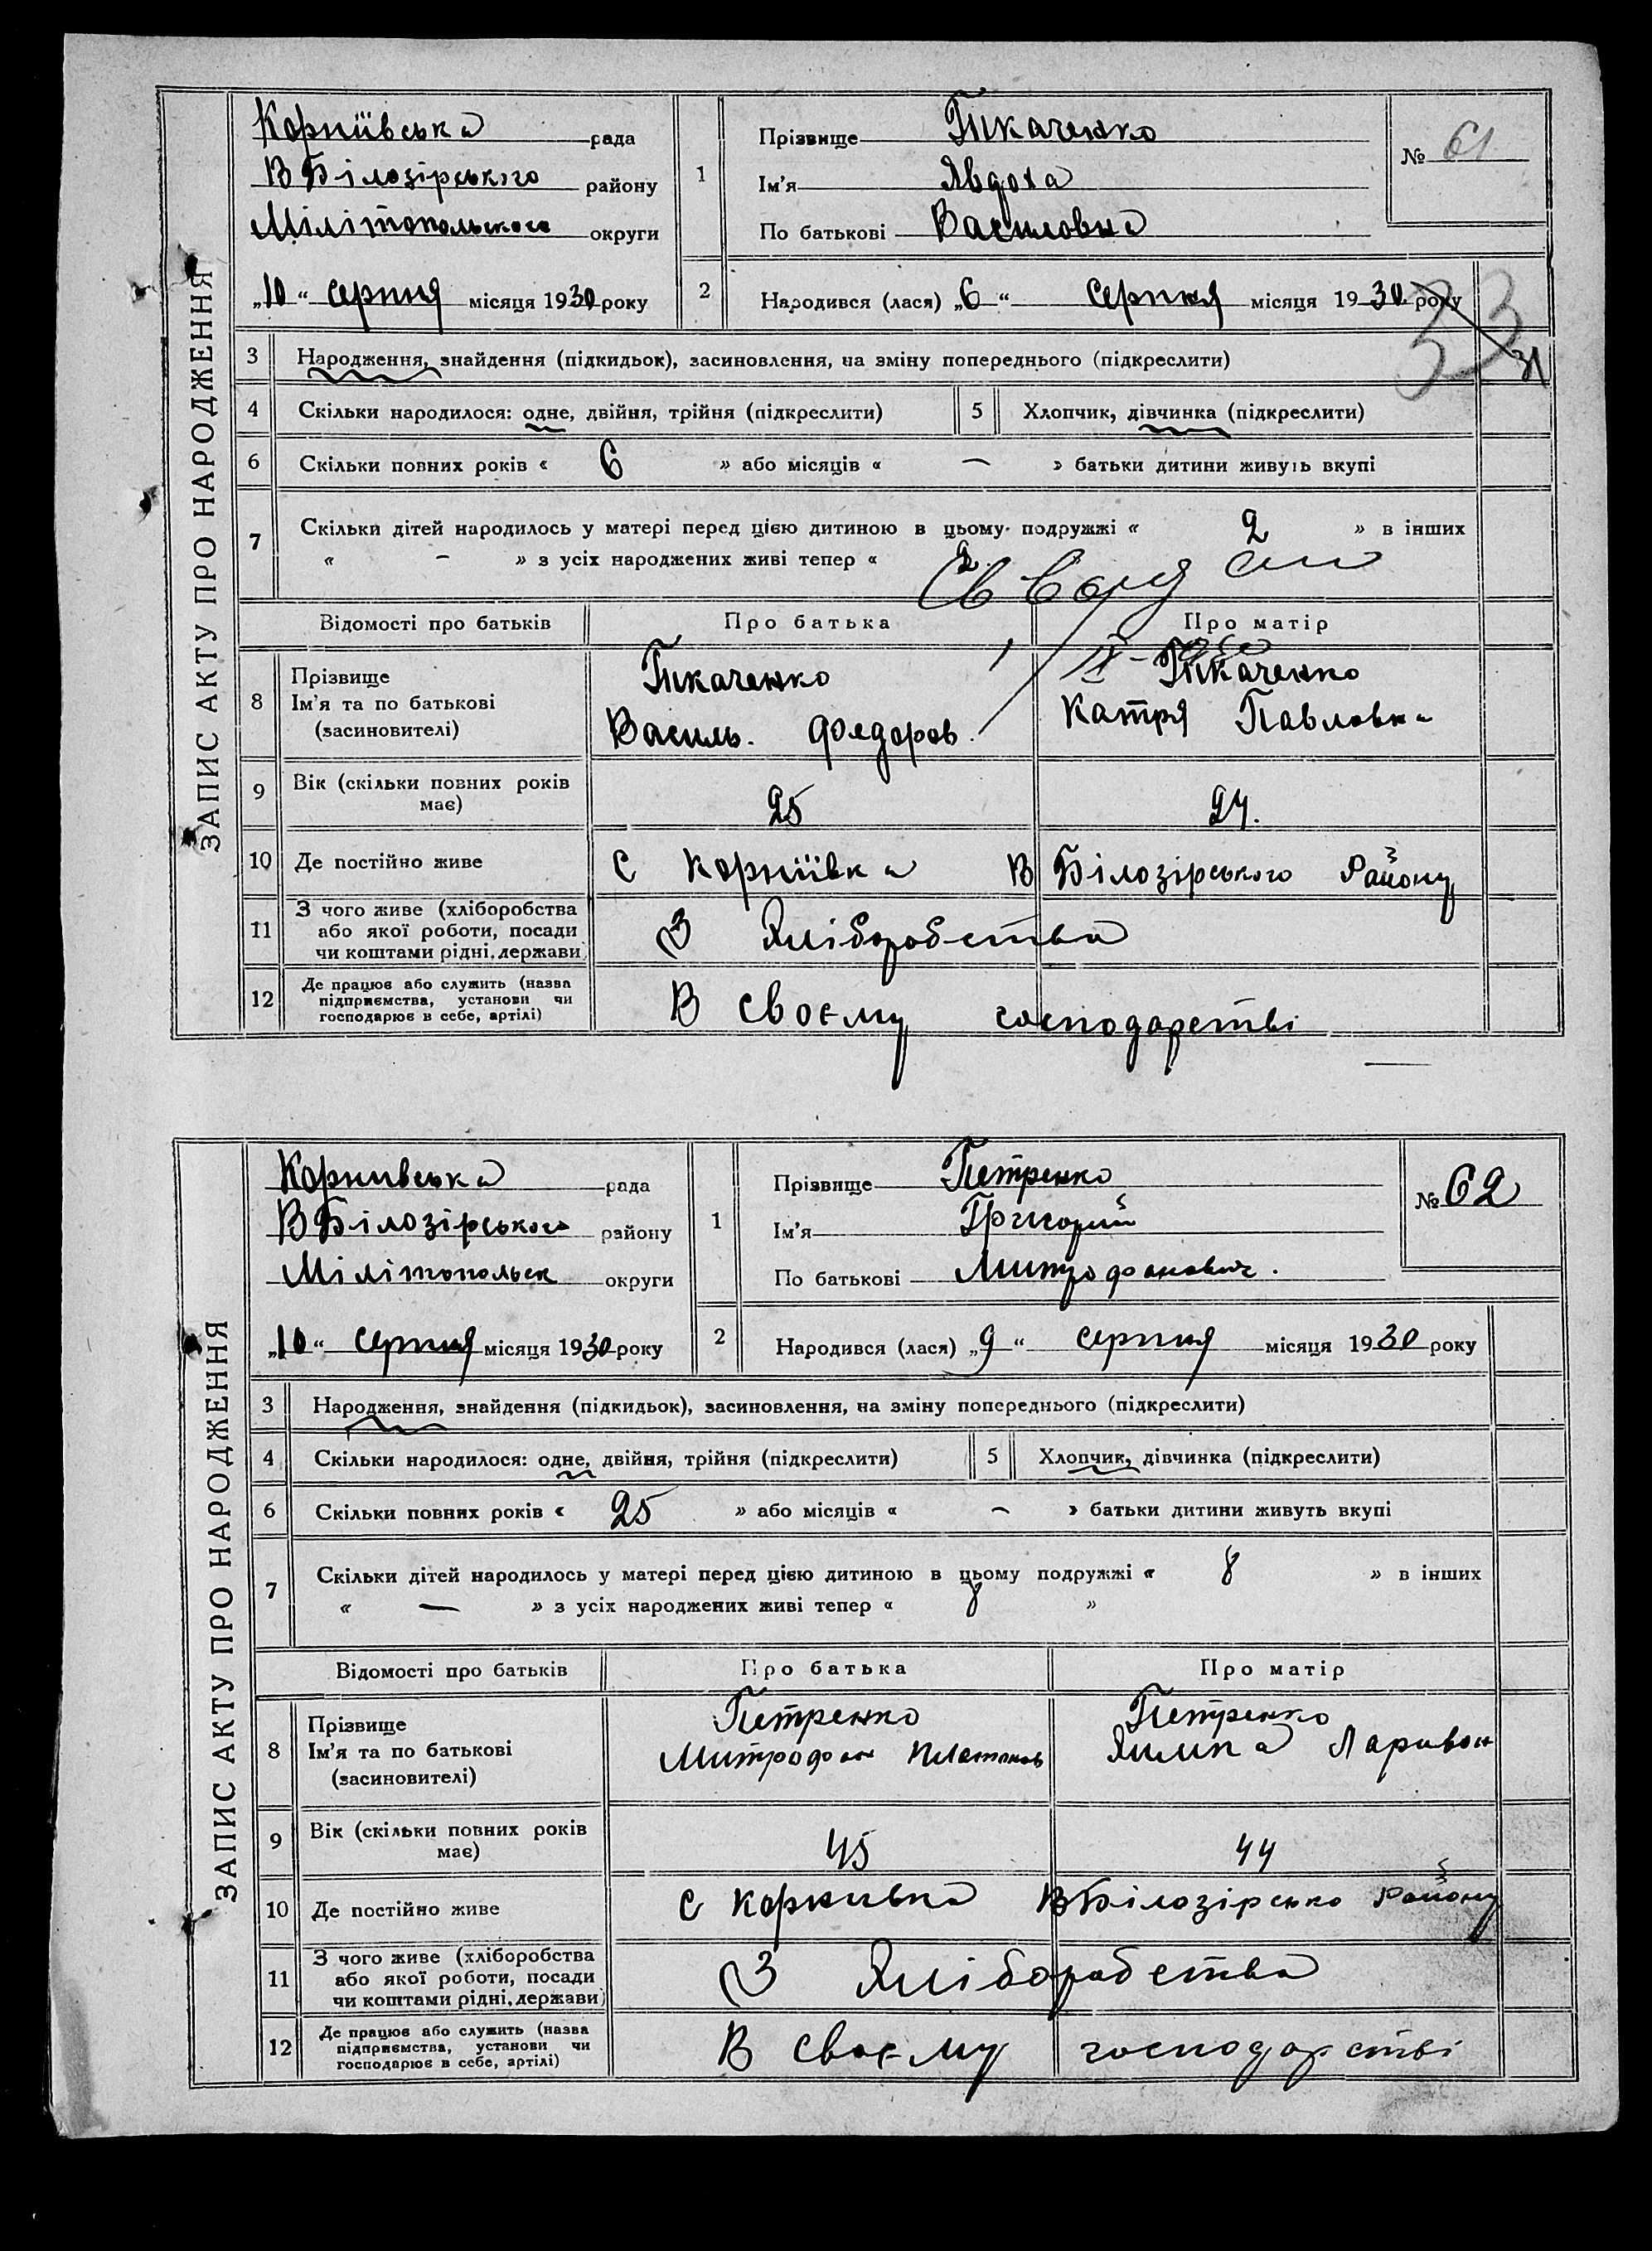 ЗАПИС АКТУ ПРО НАРОДЖЕННЯ
Корніївська рада
В Білозірського району
Мілітопольского округи
„10“ серпня місяця 1930 року
1 Прізвище Ткаченко
Ім'я Явдоха
По батькові Василовна
№ 61
2 Народився (лася) „6“ серпня місяця 1930 року
33
31
3 Народження, знайдення (підкидьок), засиновлення, на зміну попереднього (підкреслити)
4 Скільки народилося: одне, двійня, трійня (підкреслити) 5 Хлопчик, дівчинка (підкреслити)
6 Скільки повних років « 6 » або місяців « — » батьки дитини живуть вкупі
7 Скільки дітей народилось у матері перед цією дитиною в цьому подружжі « 2 » в інших
« – » з усіх народжених живі тепер « 2
Відомості про батьків Про батька Про матір
8 Прізвище Ім'я та по батькові (засиновителі)
Ткаченко Ткаченко
Василь Федоров. Катря Павловна
9 Вік (скільки повних років має) 25 24.
10 Де постійно живе с Корніївка В Білозірського Району
11 З чого живе (хліборобства або якої роботи, посади чи коштами рідні, держави) З Хліборобства
12 Де працює або служить (назва підприємства, установи чи господарює в себе, артілі) В своєму господарстві
ЗАПИС АКТУ ПРО НАРОДЖЕННЯ
Корнивська рада
В Білозірського району
Мілітопольск округи
„10“ серпня місяця 1930 року
1 Прізвище Петренко
Ім'я Григорий
По батькові Митрофанович.
№ 62
2 Народився (лася) „9“ серпня місяця 1930 року
3 Народження, знайдення (підкидьок), засиновлення, на зміну попереднього (підкреслити)
4 Скільки народилося: одне, двійня, трійня (підкреслити) 5 Хлопчик, дівчинка (підкреслити)
6 Скільки повних років « 25 » або місяців « – » батьки дитини живуть вкупі
7 Скільки дітей народилось у матері перед цією дитиною в цьому подружжі « 8 » в інших
« — » з усіх народжених живі тепер « 8 »
Відомості про батьків Про батька Про матір
8 Прізвище Ім'я та по батькові (засиновителі)
Петренко Петренко
Митрофан Платонов Ларивон
9 Вік (скільки повних років має) 45 44
10 Де постійно живе с Корнивка В Білозірсько Району
11 З чого живе (хліборобства або якої роботи, посади чи коштами рідні, держави) З Хліборобства
12 Де працює або служить (назва підприємства, установи чи господарює в себе, артілі) В своєму господарстві